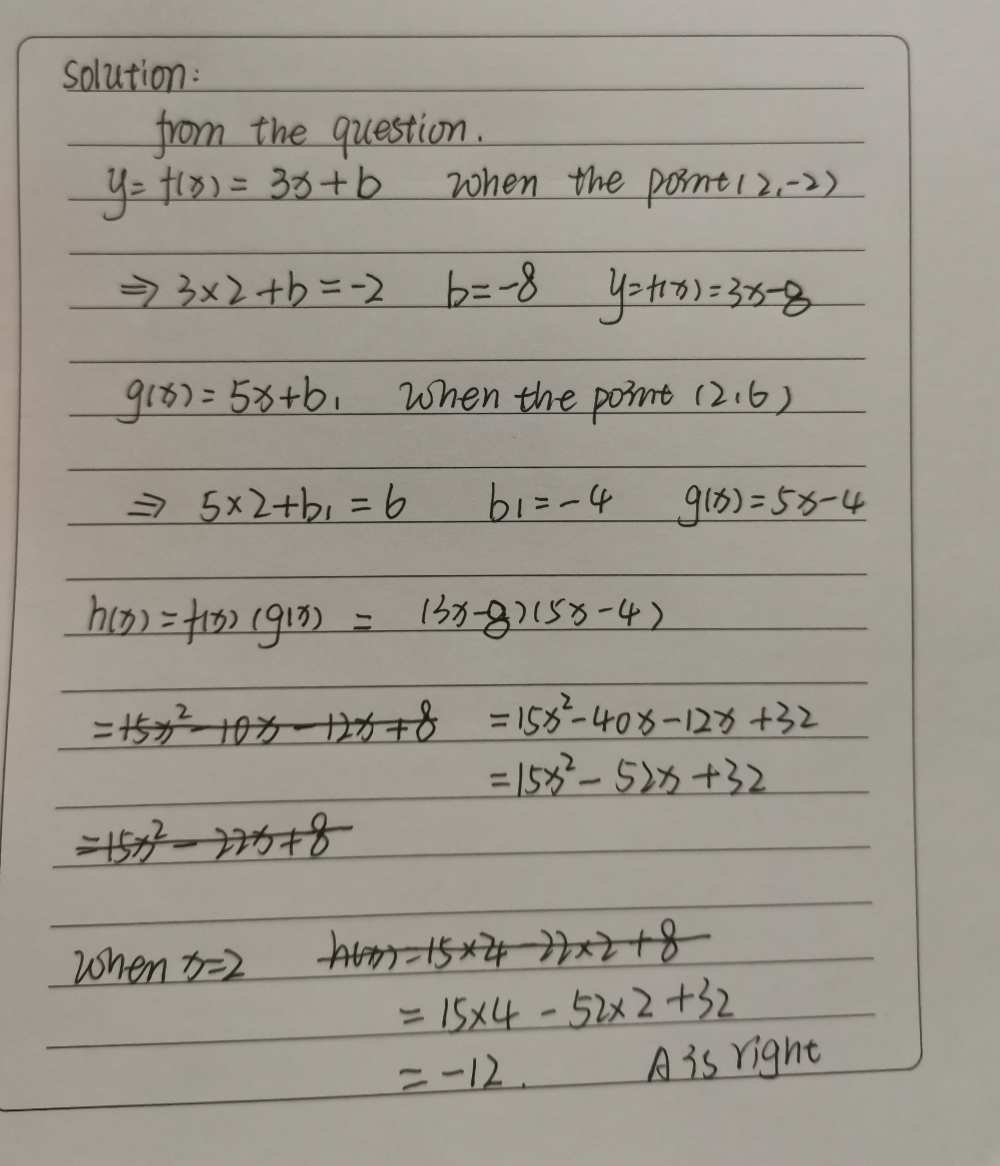 Solution:
from the question.
y=f(x)=3x+b when the point(2,-2)
⇒3×2+b=-2 b=-8 y=f(x)=3x-8
g(x)=5x+b₁ when the point (2,6)
⇒ 5×2+b₁=6 b₁=-4 g(x)=5x-4
h(x)=f(x)(g(x) = (3x-8)(5x-4)
=15x²-10x-12x+8 =15x²-40x-12x+32
=15x²-52x+32
=15x²-22x+8
when x=2 h(x)=15×4-22×2+8
=15×4-52×2+32
=-12. A is right